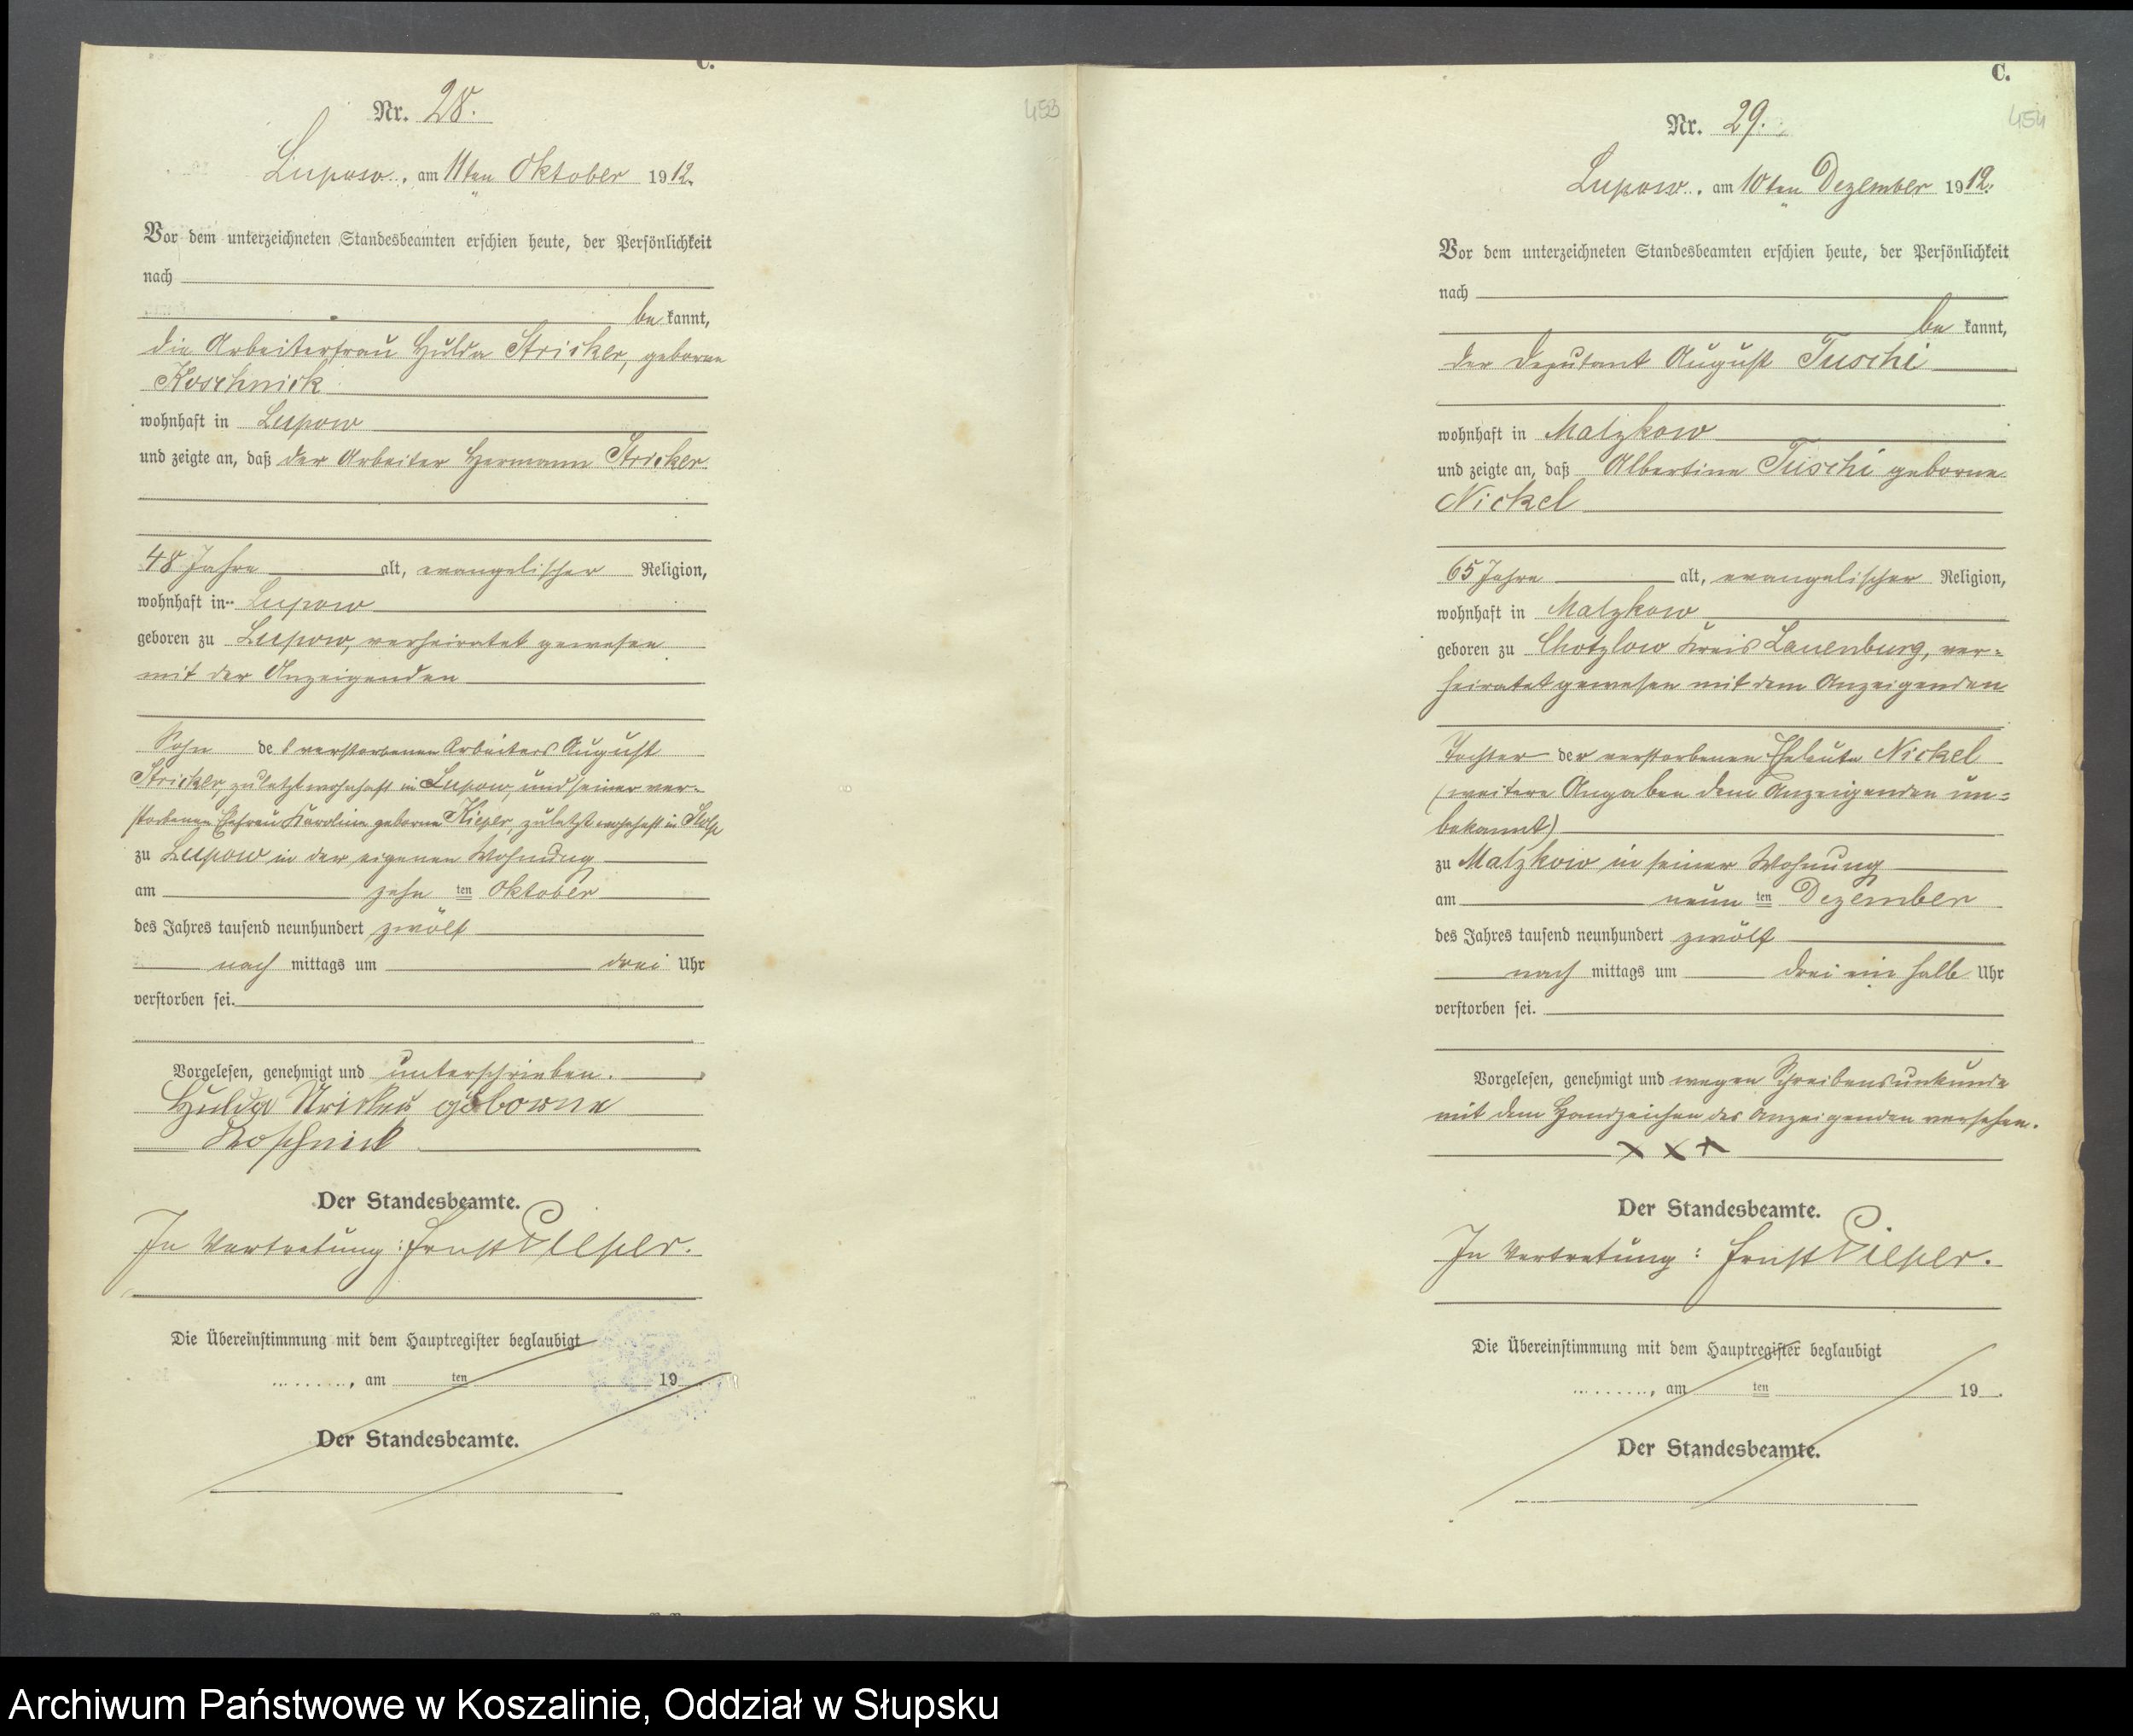 C.
Nr. 28.
453
Lupow, am 11ten Oktober 1912.
Vor dem unterzeichneten Standesbeamten erschien heute, der Persönlichkeit
nach
be kannt,
die Arbeiterfrau Hulda Stricker, geborne
Koschnick
wohnhaft in Lupow
und zeigte an, daß der Arbeiter Hermann Stricker
48 Jahre alt, evangelischer Religion,
wohnhaft in Lupow
geboren zu Lupow, verheiratet gewesen
mit der Anzeigenden
Sohn des verstorbenen Arbeiters August
Stricker, zuletzt wohnhaft in Lupow, und seiner ver-
storbenen Ehefrau Karoline geborne Kieper, zuletzt wohnhaft in Stolp
zu Lupow in der eigenen Wohnung
am zehn ten Oktober
des Jahres tausend neunhundert zwölf
nach mittags um drei Uhr
verstorben sei.
Vorgelesen, genehmigt und unterschrieben.
Hulda Stricker geborne
Koschnick
Der Standesbeamte.
In Vertretung: Ernst Pieper.
Die Übereinstimmung mit dem Hauptregister beglaubigt
........, am ten 19
Der Standesbeamte.
C.
Nr. 29.
454
Lupow, am 10ten Dezember 1912.
Vor dem unterzeichneten Standesbeamten erschien heute, der Persönlichkeit
nach
be kannt,
der Deputant August Tuschi
wohnhaft in Matzkow
und zeigte an, daß Albertine Tuschi geborne
Nickel
65 Jahre alt, evangelischer Religion,
wohnhaft in Matzkow
geboren zu Chotzlow Kreis Lauenburg, ver-
heiratet gewesen mit dem Anzeigenden
Tochter der verstorbenen Eheleute Nickel
(weitere Angaben dem Anzeigenden un-
bekannt)
zu Matzkow in seiner Wohnung
am neun ten Dezember
des Jahres tausend neunhundert zwölf
nach mittags um drei ein halb Uhr
verstorben sei.
Vorgelesen, genehmigt und wegen Schreibensunkunde
mit dem Handzeichen des Anzeigenden versehen.
x x x
Der Standesbeamte.
In Vertretung: Ernst Pieper.
Die Übereinstimmung mit dem Hauptregister beglaubigt
........, am ten 19 .
Der Standesbeamte.
Archiwum Państwowe w Koszalinie, Oddział w Słupsku